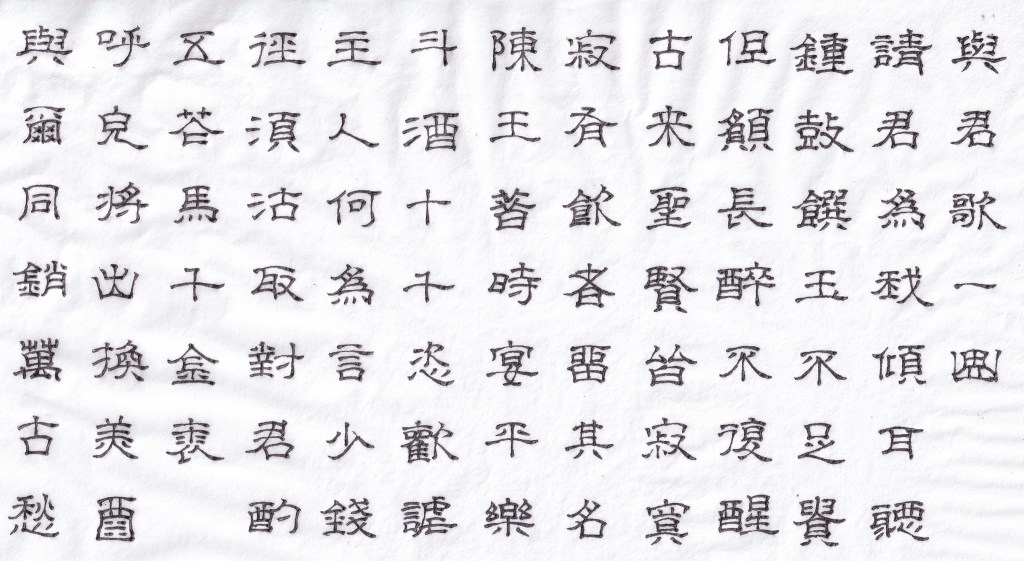 與君歌一曲
請君為我傾耳聽
鍾鼓饌玉不足貴
但願長醉不復醒
古来聖賢皆寂寞
寂有飲者留其名
陳王昔時宴平樂
斗酒十千恣歡謔
主人何為言少錢
徑須沽取對君酌
五花馬千金裘
呼兒將出換美酉
與爾同銷萬古愁